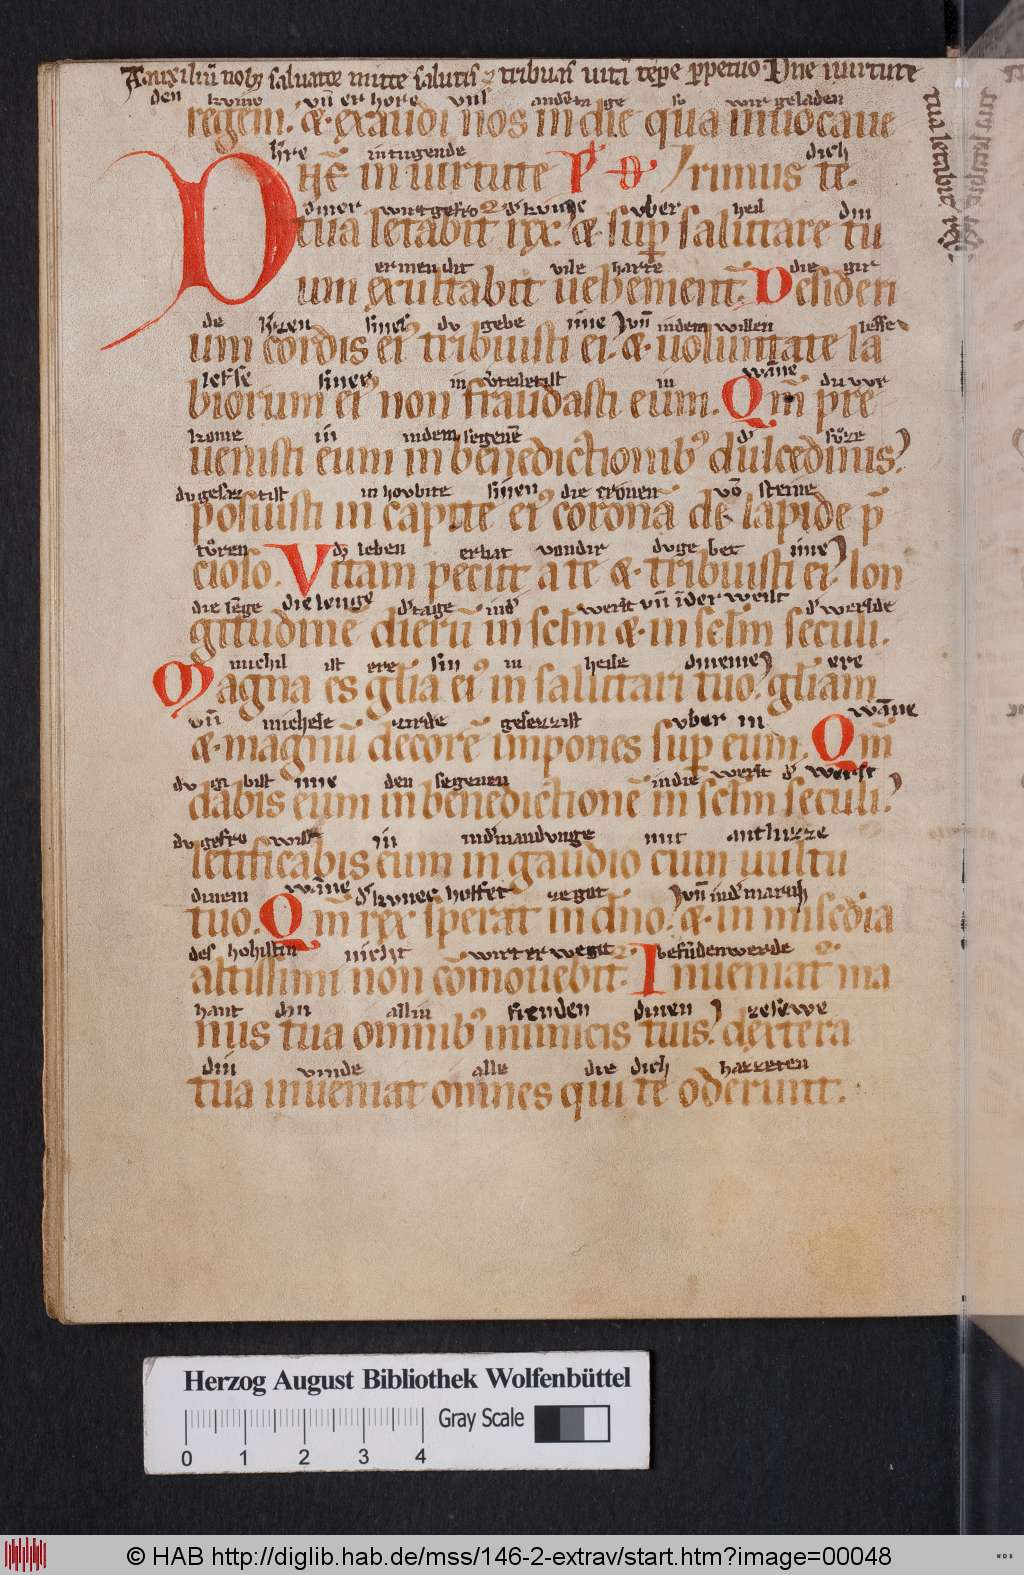 Auxiliū nob̄ saluator mitte salutis ⁊ tribuas uitā tēpe ꝑpetuo. Dn̄e in uirtute
tua letabit̄ rex
den kvnic vn̄ er hore vnſ an dē ta ge ſo wir geladen
regem. ⁊ exaudi nos in die qua inuocaue
h̄re in tugende dich
rimus te.
DN̄E in uirtute
diner wirt gefro d̾ kvnic vber heil din
tua letabit̄ rex: ⁊ sup̄ salutare tu
er mendit vile harte die gir
um exultabit uehement̄. Desideri
de h̾zen ſines dv gebe ime vn̄ in dem willen leffe
um cordis ei᷒ tribuisti ei: ⁊ uoluntate la
ſiner in in wāne du vor
biorum ei᷒ non fraudasti eum. Qm̄ pre
kome in in dem ſegenē d̾ ſv̊ze
uenisti eum in benedictionib᷒ dulcedinis:
dv geſaz tiſt in hovbite ſinen die cronen vō ſteine
posuisti in capite ei᷒ coronā de lapide p̄
tv̊ren dz leben er bat von dir dv ge bet ime
cioso. Vitam peciit a te ⁊ tribuisti ei: lon
die lēge die lenge d̾ tage in d̾ werlt vn̄ in der werlt d̾ werlde
gitudinē dierū in sclm̄ ⁊ in sclm̄ seculi.
michil iſt ere ſin in heile dineme ere
Magna es gl̄ia ei᷒ in salutari tuo: gl̄iam
vn̄ michele zirde geſezziſt vber in wāne
⁊ magnū decorē impones sup̄ eum. Qm̄
dv gi biſt ime den ſegenen in die werlt d̾ werlt
dabis eum in benedictionē in sclm̄ seculi:
dv gefro wiſt in in d̾ mandvnge mit antluzze
letificabis eum in gaudio cum uultu
dinem wāne d̾ kvnec hoffet ze got vn̄ in d̾
tuo. Qm̄ rex sperat in dn̄o: ⁊ in mis̄c̄dia
des hohiſtin nicht wirt er wegit befūden werde
altissimi non cōmouebit᷒. Inueniat᷒ ma
hant din allin fienden dinen zeſewe
nus tua omnib᷒ inimicis tuis: dextera
din vinde alle die dich hazzeten
tua inueniat omnes qui te oderunt.
Herzog August Bibliothek Wolfenbüttel
0 1 2 3 4 Gray Scale
© HAB http://diglib.hab.de/mss/146-2-extrav/start.htm?image=00048